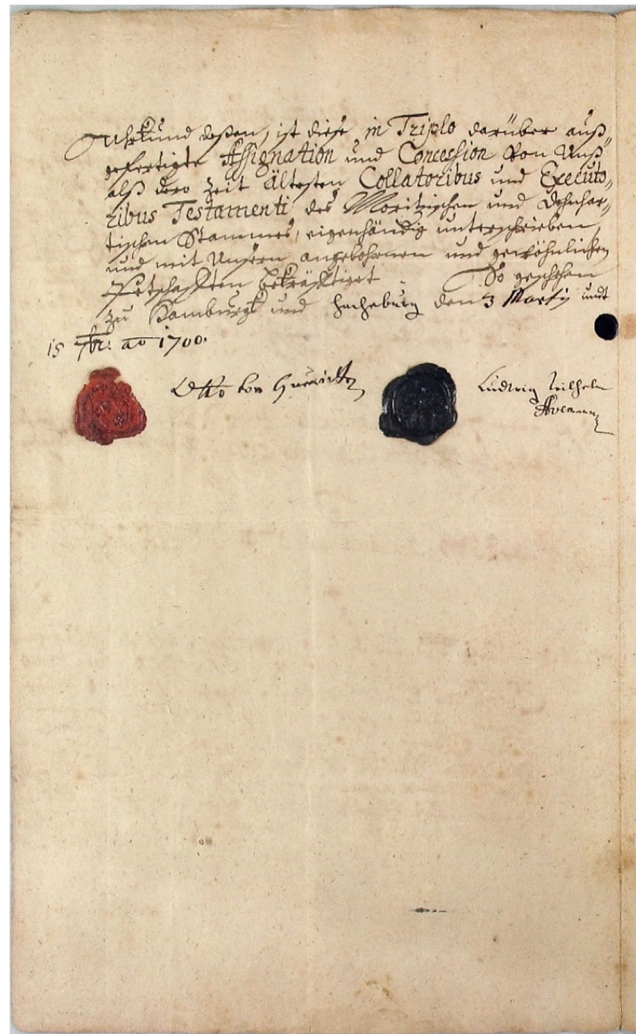 Uhrkund deßen, ist diese in Triplo darüber auß„
gefertigte Assignation und Concession von Unß
alß der Zeit Ältesten Collatoribus und Executo„
ribus Testamenti des Moritzischen und
tischen Stammes, eigenhändig unterschrieben,
und mit Unsern angebohrnen und gewöhnlichen
Petschafften bekräfftiget So geschehen
zu Hamburgk und den 3 Martij undt
15 7br. ao 1700.
Otto von Guericke
Ludwig Wilhelm